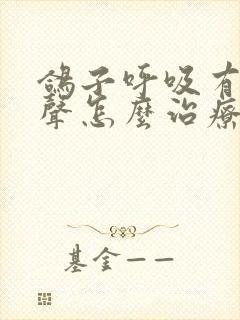 鴿子呼吸有
聲怎麼治療
基金——